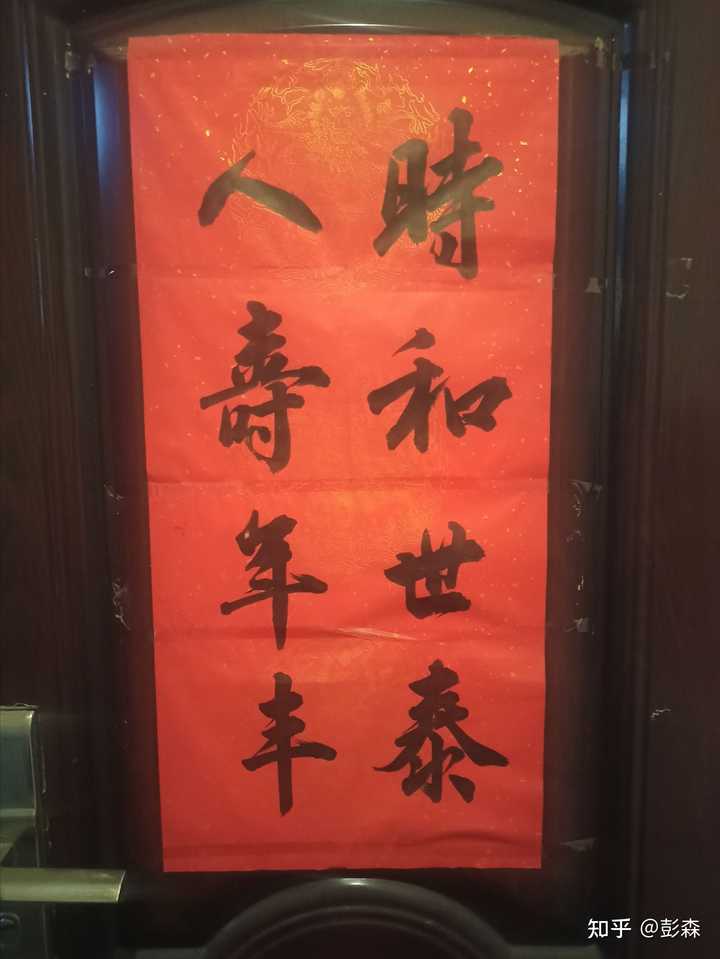 時和世泰
人壽年丰
知乎 @彭森